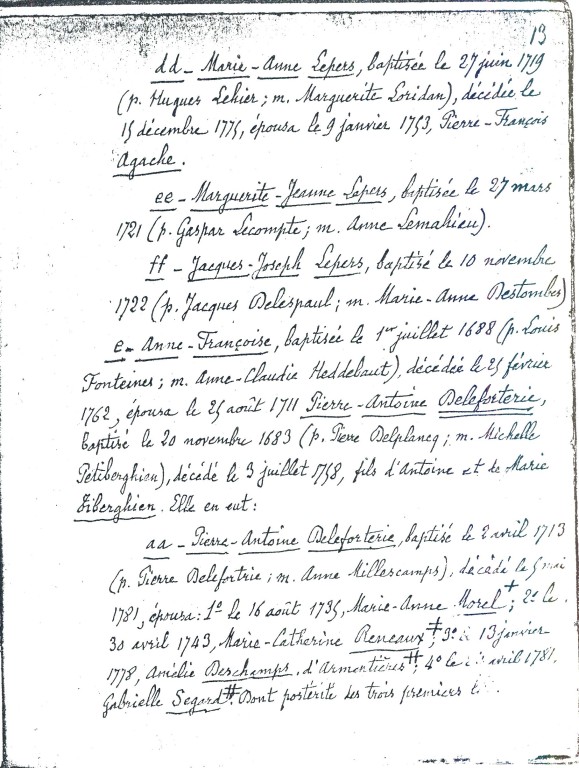 13
dd - Marie - Anne Lepers, baptisée le 27 juin 1719
(p. Hugues Lehier ; m. Marguerite Loridan), décédée le
15 décembre 1775, épousa le 9 janvier 1753, Pierre - François
Agache.
ee - Marguerite - Jeanne Lepers, baptisée le 27 mars
1721 (p. Gaspar Lecompte ; m. Anne Lemahieu).
ff - Jacques - Joseph Lepers, baptisé le 10 novembre
1722 (p. Jacques Delespaul ; m. Marie - Anne Destombes)
e - Anne - Françoise, baptisée le 1er juillet 1688 (p. Louis
Fonteines ; m. Anne - Claudie Heddebaut), décédée le 25 février
1762, épousa le 25 août 1711 Pierre - Antoine Deleforterie,
baptisé le 20 novembre 1683 (p. Pierre Delplancq ; m. Michelle
Petiberghien), décédé le 3 juillet 1758, fils d'Antoine et de Marie
Tiberghien. Elle en eut :
aa - Pierre - Antoine Deleforterie, baptisé le 2 avril 1713
(p. Pierre Delefortrie ; m. Anne Millescamps), décédé le 5 mai
1781, épousa : 1º le 16 août 1735, Marie - Anne Morel + ; 2º le
30 avril 1743, Marie - Catherine Reneaux ‡ ; 3º 13 janvier
1778, Amélie Deschamps, d'Armentières # ; 4º le avril 1781,
Gabrielle Segard #. Dont postérité des trois premiers